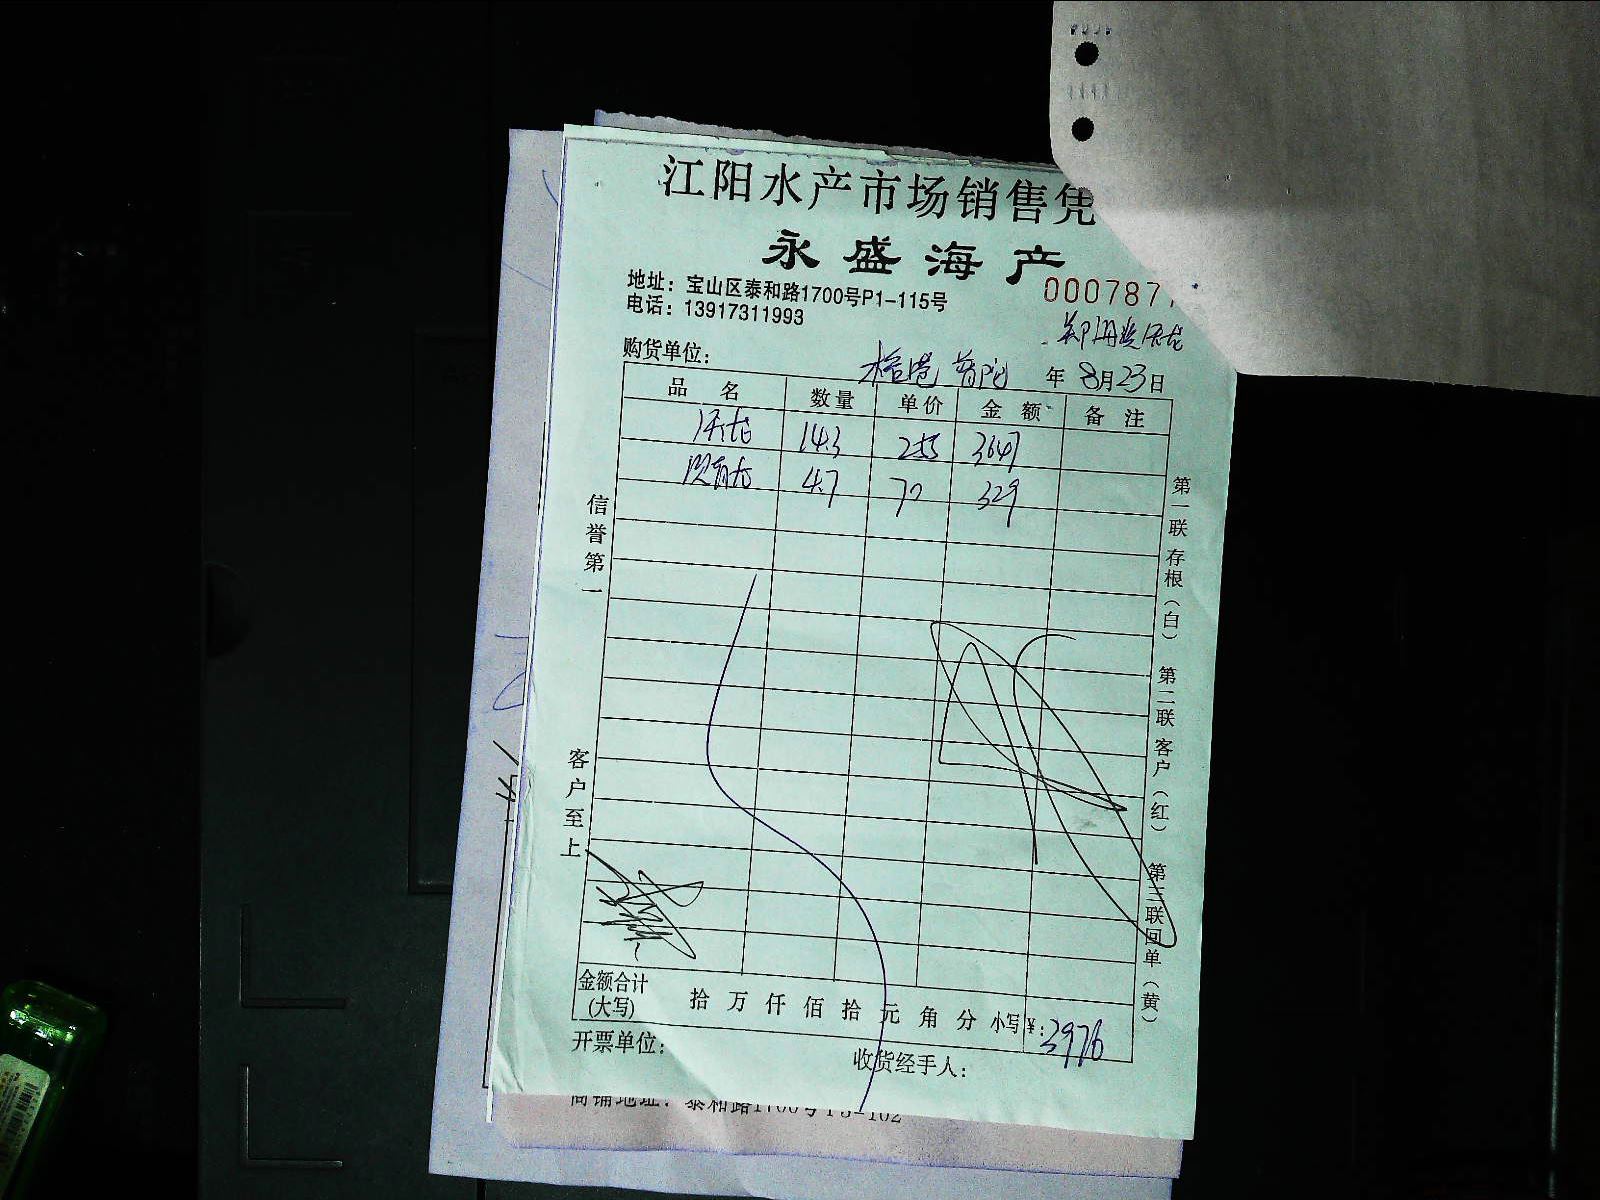 江阳水产市场销售凭
永盛海产
地址：宝山区泰和路1700号P1-115号
000787
电话：13917311993
购货单位：
年 8月23日
品 名 数量 单价 金 额 备 注
14.3 255 3647
4.7 70 329
信誉第一
客户至上
第一联 存根（白） 第二联 客户（红） 第三联 回单（黄）
金额合计 拾 万 仟 佰 拾 元 角 分 小写¥：3976
（大写）
开票单位：
收货经手人：
商铺地址：泰和路1700号P3-102